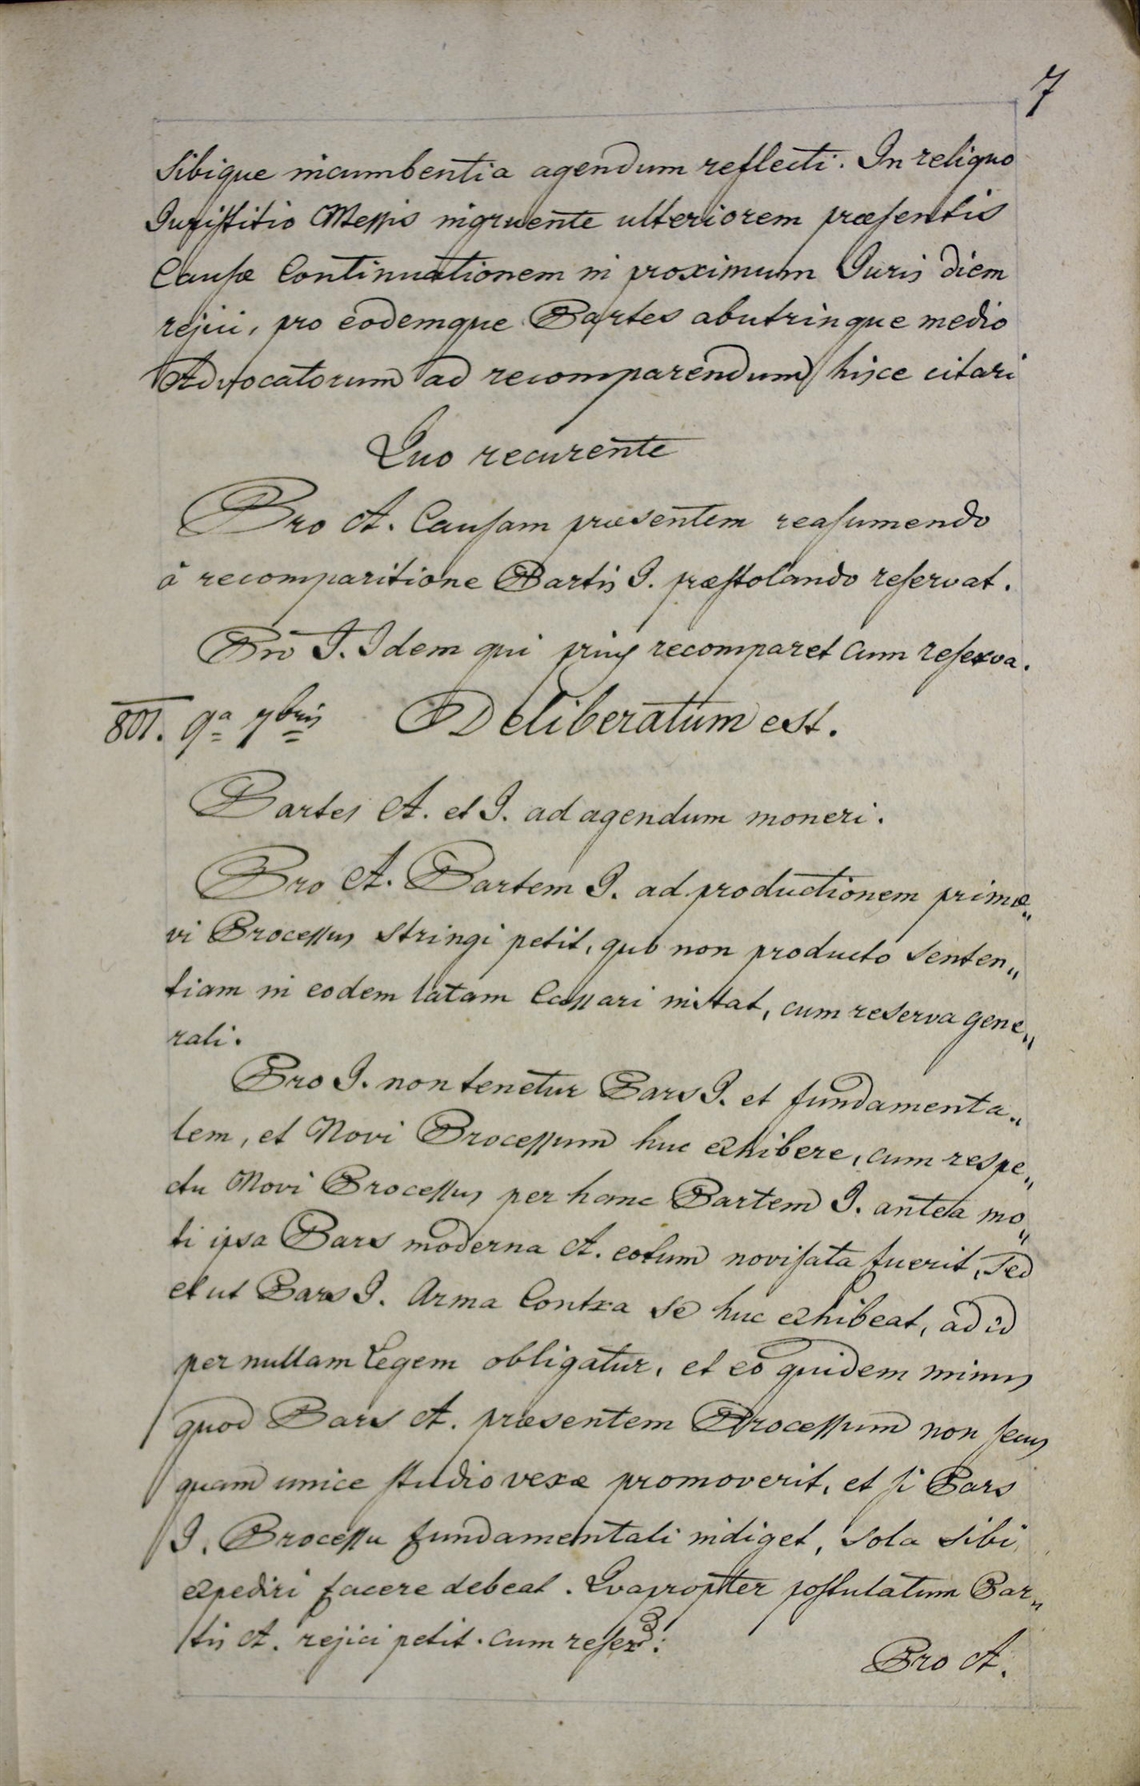 7
Sibique incumbentia agendum reflecti. In reliquo
Juristitio Messis ingruente ulteriorem præsentis
Causæ Continuationem in proximum Juris diem
rejici, pro eodemque Partes abutrinque medio
Advocatorum ad recomparendum hisce citari
Quo recurente
Pro A. Causam præsentem reasumendo
à recomparitione Partis I. præstolando reservat.
Pro I. Idem qui prius recomparet cum reserva.
801. 9a 7bris Deliberatum est.
Partes A. et I. ad agendum moneri.
Pro A. Partem I. ad productionem primæ„
vi Processus stringi petit, quo non producto Senten„
tiam in eodem latam Cassari instat, cum reserva gene„
rali.
Pro I. non tenetur Pars I. et fundamenta„
lem, et Novi Processum huc exhibere, cum respe„
ctu Novi Processus per hanc Partem I. antea mo„
ti ipsa Pars moderna A. eotum novisata fuerit, Sed
et ut Pars I. Arma Contra se huc exhibeat, ad id
per nullam Legem obligatur, et eo quidem minus
quod Pars A. præsentem Processum non secus
quam unice studio vexæ promoverit, et si Pars
I. Processu fundamentali indiget, sola sibi
expediri facere debeat. Qvapropter postulatum Par„
tis A. rejici petit. cum reser:
Pro A.